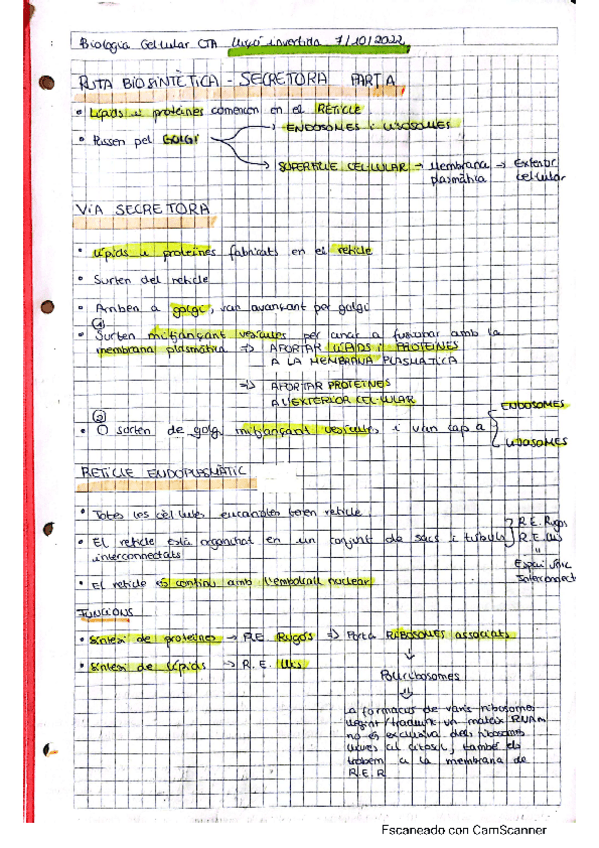 Biologia Cel·lular CTA lliçó invertida 7/10/2022
RUTA BIOSINTÈTICA - SECRETORA PART A
• Lípids i proteïnes comencen en el RETICLE
• Passen pel GOLGI → ENDOSOMES i LISOSOMES
→ SUPERFICIE CEL·LULAR → Membrana plasmàtica → Exterior cel·lular
VIA SECRETORA
• Lípids i proteïnes fabricats en el reticle
• Surten del reticle
• Arriben a golgi, van avançant per golgi
①
• Surten mitjançant vesícules per anar a fusionar amb la
membrana plasmàtica => APORTAR LÍPIDS I PROTEÏNES
A LA MEMBRANA PLASMÀTICA
=> APORTAR PROTEÏNES
A L'EXTERIOR CEL·LULAR
②
• O surten de golgi mitjançant vesícules i van cap a ENDOSOMES
LISOSOMES
RETICLE ENDOPLASMÀTIC
• Totes les cèl·lules eucariotes tenen reticle
• El reticle està organitzat en un conjunt de sacs i túbuls
interconnectats
R.E. Rugós
R.E. Llis
"
Espai únic
Interconnect
• El reticle és continu amb l'embolcall nuclear
FUNCIONS
• Síntesi de proteïnes → R.E. Rugós => Porta RIBOSOMES associats
↓
Poliribosomes
⇓
• Síntesi de lípids → R.E. Llis
La formació de varis ribosomes
llegint/traduint un mateix RNAm
no és exclusiva dels ribosomes
lliures al citosol, també els
trobem a la membrana de
R.E.R
Escaneado con CamScanner